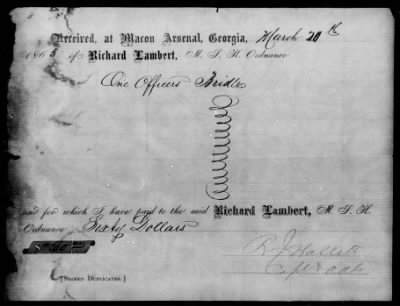 Received, at Macon Arsenal, Georgia, March 20th
186 of Richard Lambert, M. S. K. Ordnance
One Officers Bridle
and for which I have paid to the said Richard Lambert, M. S. K.
Ordnance Sixty Dollars
[SIGNED DUPLICATES.]